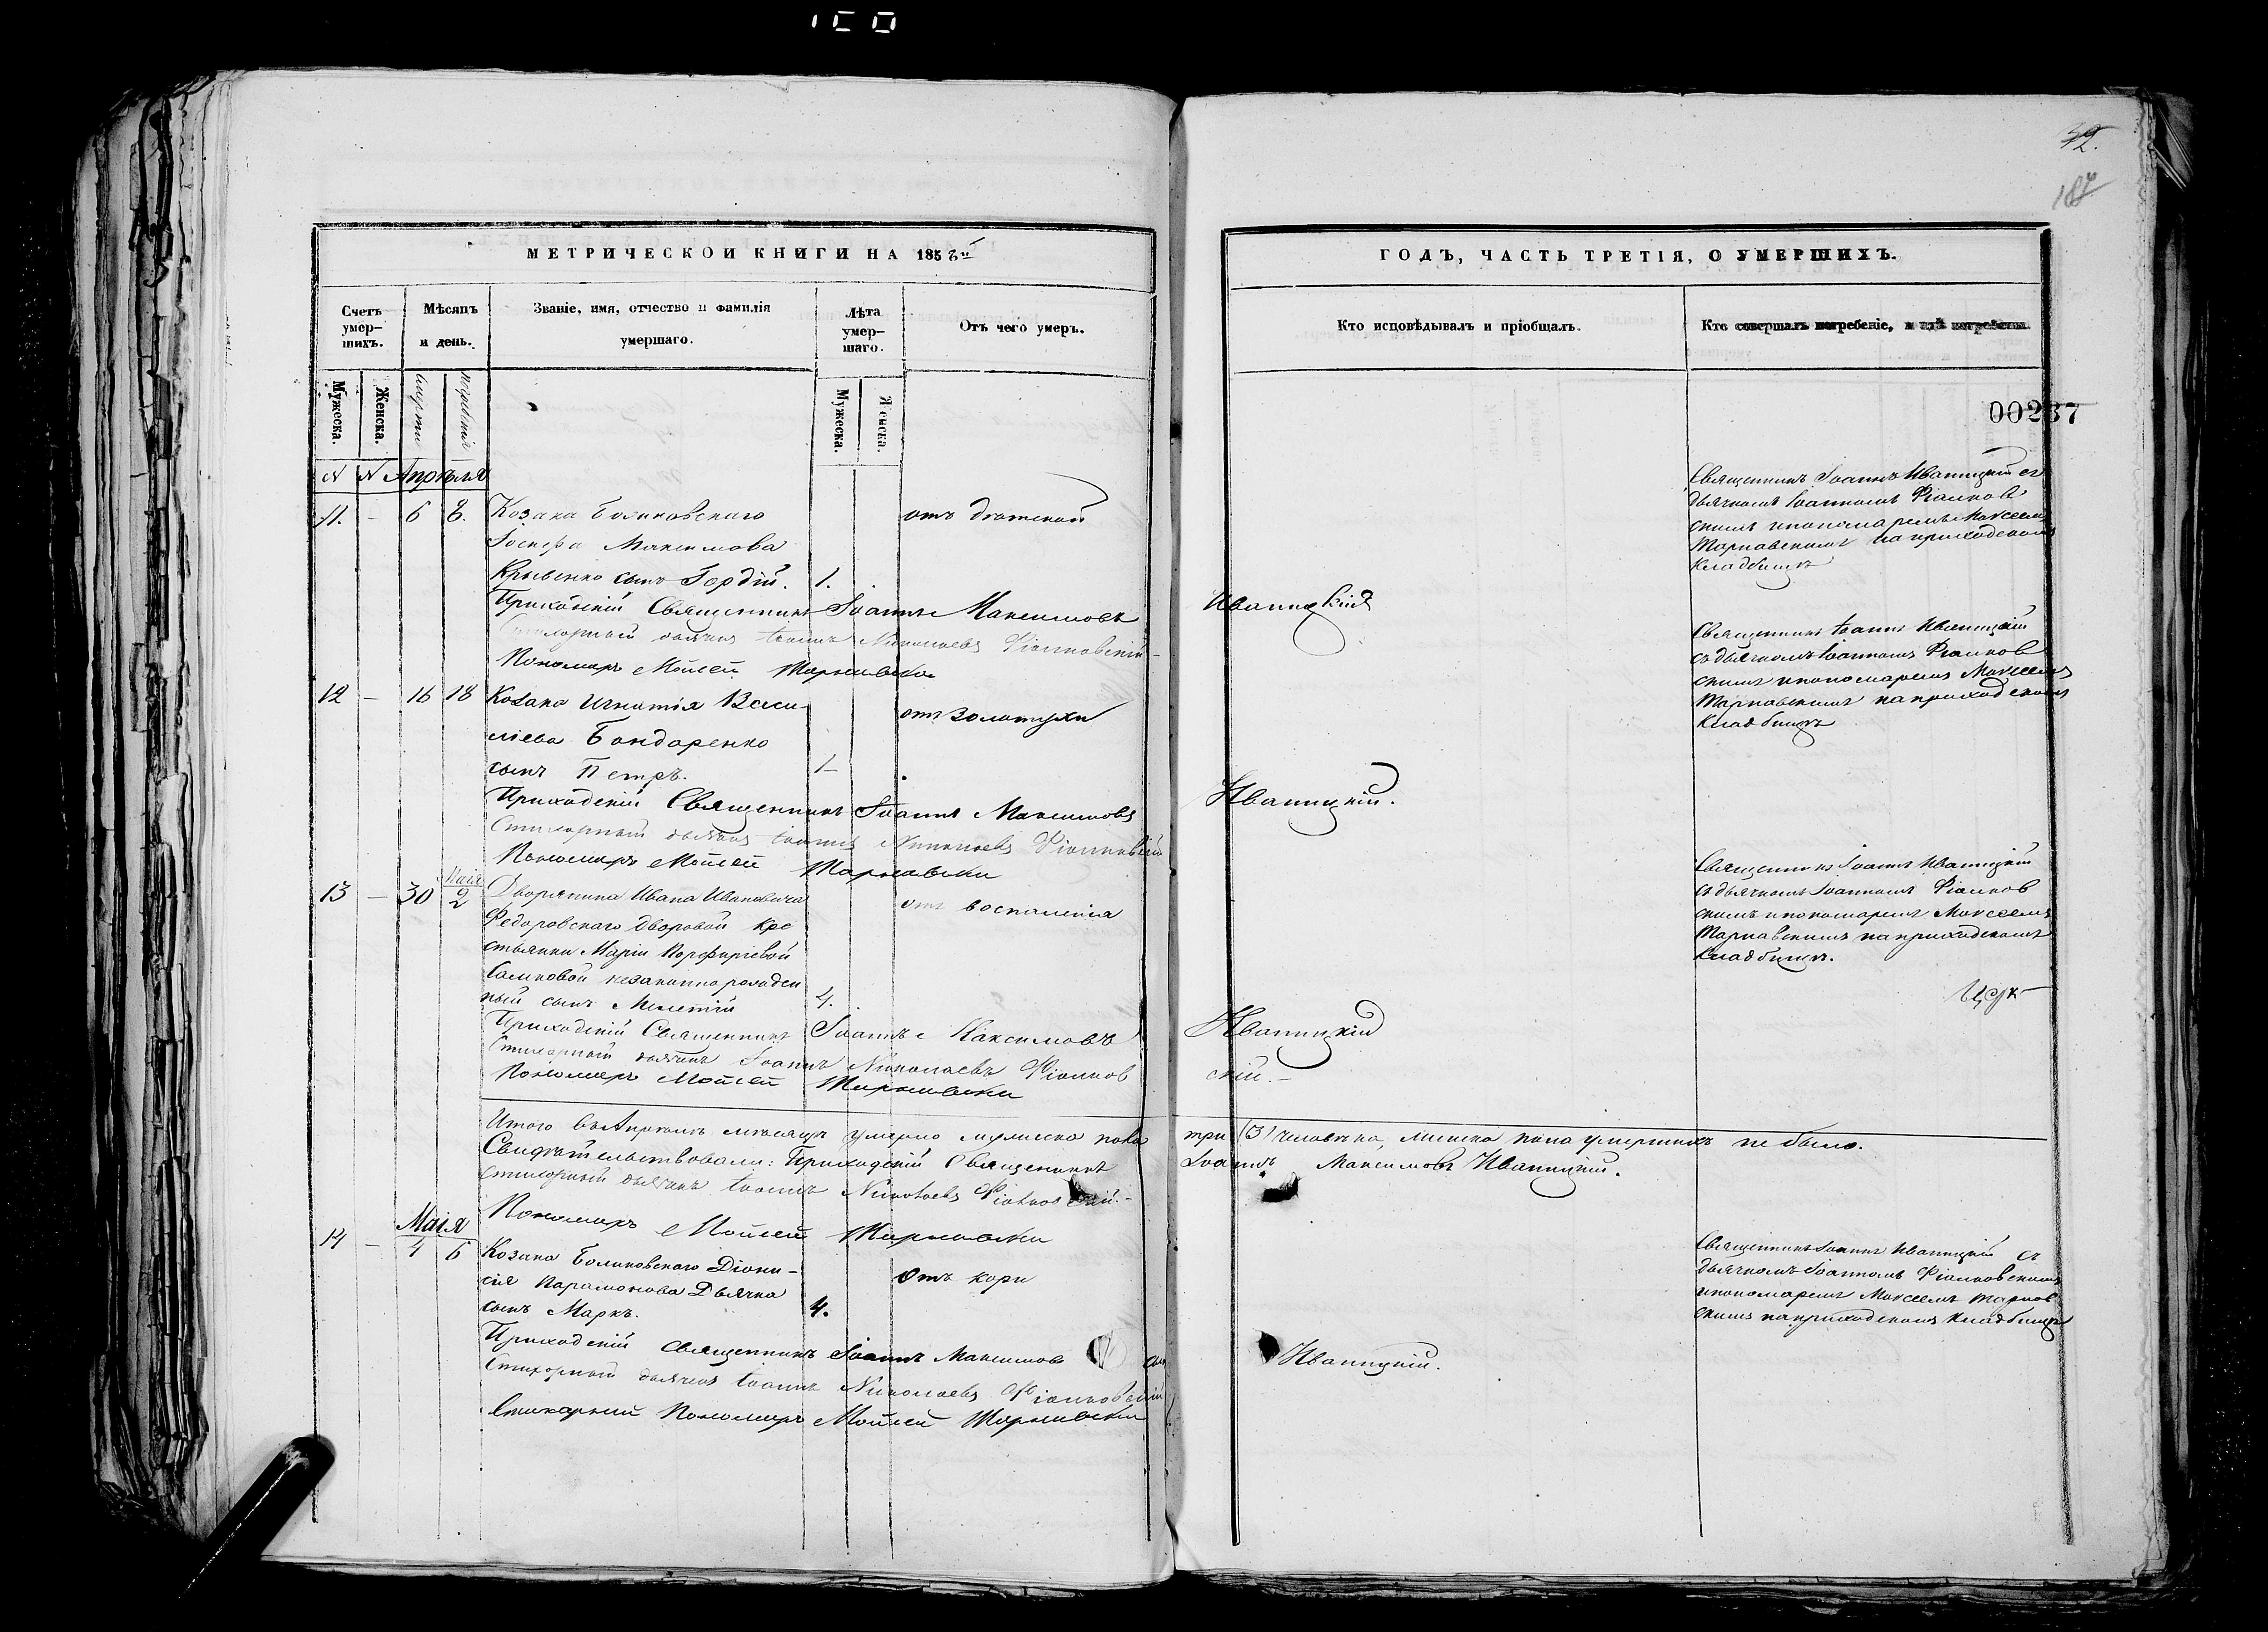 МЕТРИЧЕСКОЙ КНИГИ НА 185
Счетъ умер-шихъ.
Мѣсяцъ и день.
Званіе, имя, отчество и фамилія умершаго.
Лѣта умер-шаго.
Отъ чего умеръ.
Мужеска.
Женска.
смерти
погребенія
Мужеска.
Женска.
N N Апрѣля
11. – 6 8. Козака
Іосифа Максимова
Кривенко сынъ Гордій. 1.
отъ
Приходскій Священникъ Іоаннъ Максимовъ
Стихарный дьячекъ Іоаннъ Николаевъ Фіалковскій
Пономарь Мойсей Тарнавски
12 – 16 18 Козака Игнатія Васи
лiева Бондаренко
сынъ Петръ. 1
отъ Золотухи
Приходскій Священникъ Іоаннъ Максимовъ
Стихарный дьячекъ Іоаннъ Николаевъ Фіалковскій
Пономарь Мойсей Тарнавски
13 – 30 Маія 2 Дворянина Ивана Ивановича
Федоровскаго дворовой кре
стьянки Маріи Порфиріевой
незаконнорожден
ный сынъ Мелетій 4.
отъ воспаленія
Приходскій Священникъ Іоаннъ Максимовъ
Стихарный дьячекъ Іоаннъ Николаевъ Фіалков
Пономарь Мойсей Тарнавски
Итого въ Апрѣлѣ мѣсяцѣ умерло мужеска пола
Свидѣтельствовали: Приходскій Священникъ
Стихарный дьячекъ Іоаннъ Николаевъ Фіалковскій.
Пономарь Мойсей Тарнавски
Маія
14 – 4 6 Козака Діони-
сія Парамонова Дьячка
сынъ Маркъ. 4.
отъ кори
Приходскій Священникъ Іоаннъ Максимовъ
Стихарный дьячекъ Іоаннъ Николаевъ Фіалковскій
Стихарний Пономарь Мойсей Тарнавски
ГОДЪ, ЧАСТЬ ТРЕТІЯ, О УМЕРШИХЪ.
Кто исповѣдывалъ и пріобщалъ.
Кто совершалъ погребеніе, и гдѣ погребены.
00237
Священникъ Іоаннъ Иваницкій съ
дьячкомъ Іоанномъ Фіалков
скимъ и пономаремъ Мойсеемъ
Тарнавскимъ на приходскомъ
кладбищѣ
Иваницкій
Священникъ Іоаннъ Иваницкій
съ дьячкомъ Іоанномъ Фіалков
скимъ и пономаремъ Мойсеемъ
Тарнавскимъ на приходскомъ
кладбищѣ
Иваницкій.
Священникъ Іоаннъ Иваницкій
съ дьячкомъ Іоанномъ Фіалков
скимъ и пономаремъ Мойсеемъ
Тарнавскимъ на приходскомъ
кладбищѣ.
Иваницкій
скій.–
три (3) человѣка, женска пола умершихъ не было.
Іоаннъ Максимовъ Иваницкій.
Священникъ Іоаннъ Иваницкій съ
дьячкомъ Іоанномъ Фіалковскимъ
и пономаремъ Мойсеемъ Тарнав
скимъ на приходскомъ кладбищѣ
Иваницкій.